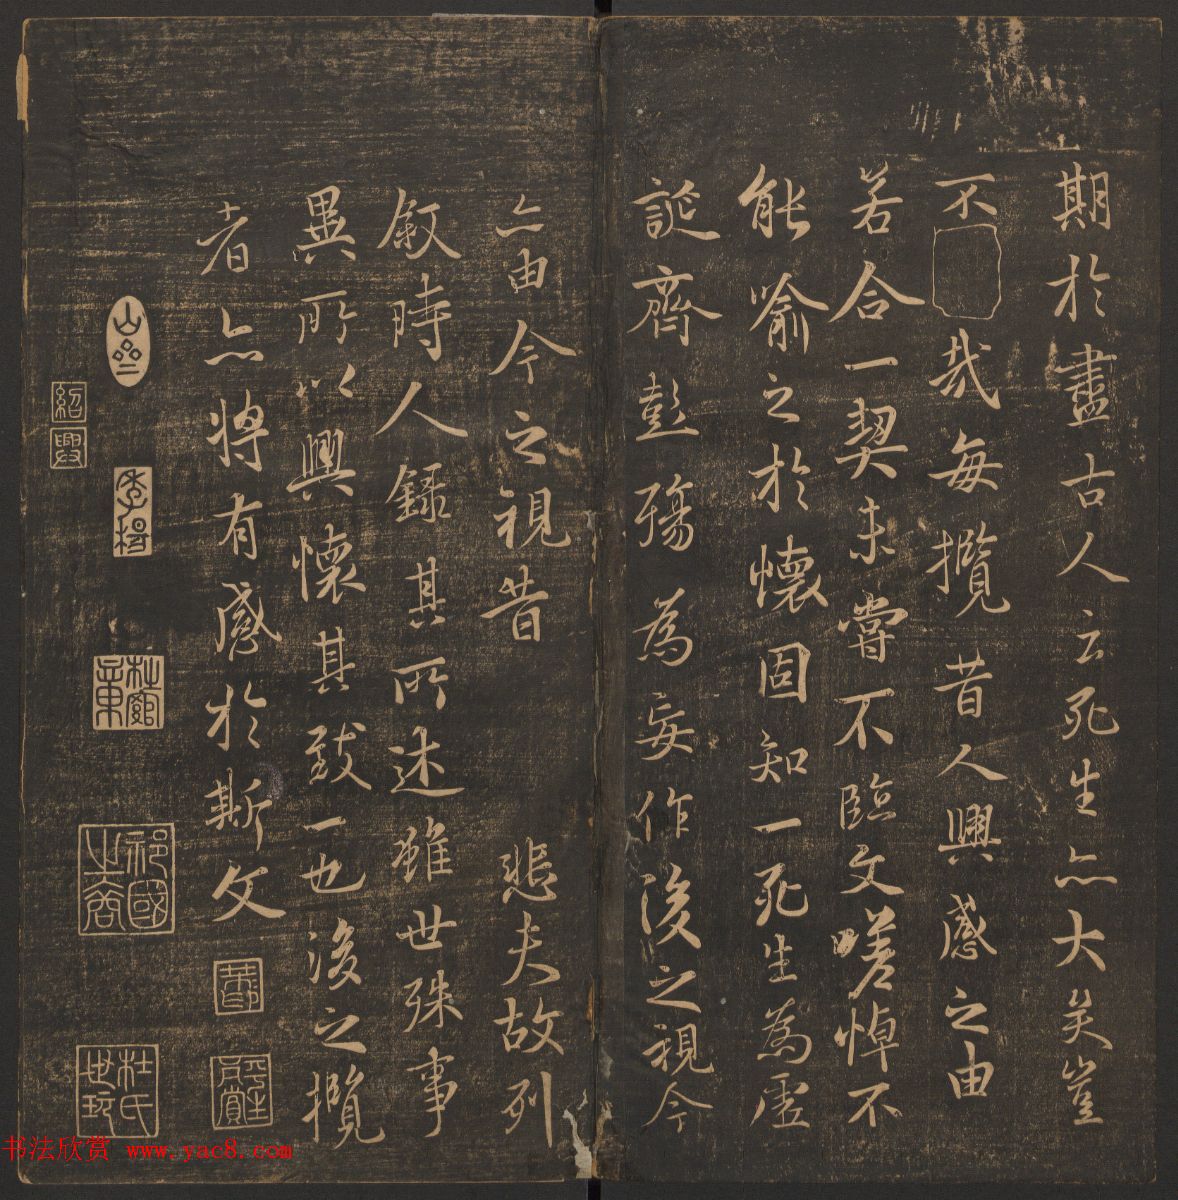 期於盡古人云死生亦大矣豈
不哉每攬昔人興感之由
若合一契未嘗不臨文嗟悼不
能喻之於懷固知一死生為虛
誕齊彭殤為妄作後之視今
亦由今之視昔悲夫故列
敘時人錄其所述雖世殊事
異所以興懷其致一也後之攬
者亦將有感於斯文
紹興
杜氏世玩
书法欣赏 www.yac8.com